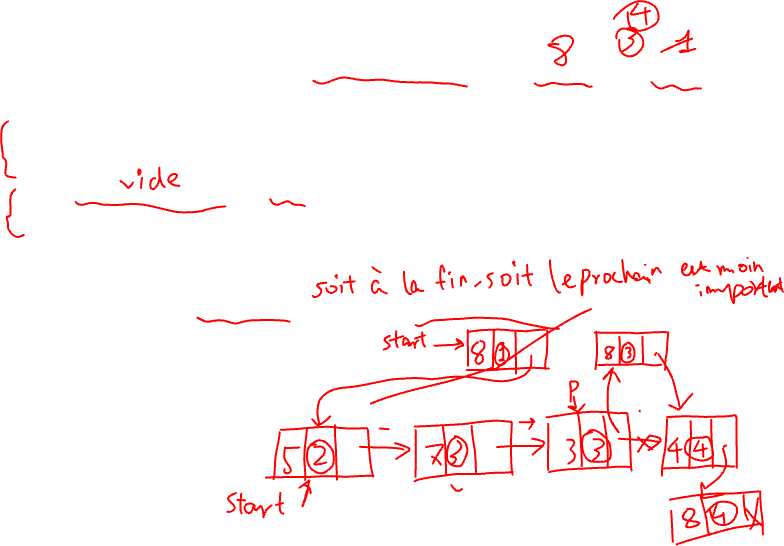 4
8 3 1
vide
soit à la fin, soit le prochain est moin
important
start → 8 1
8 3
P
5 2 → 7 3 → 3 3 → 4 4
start
8 4